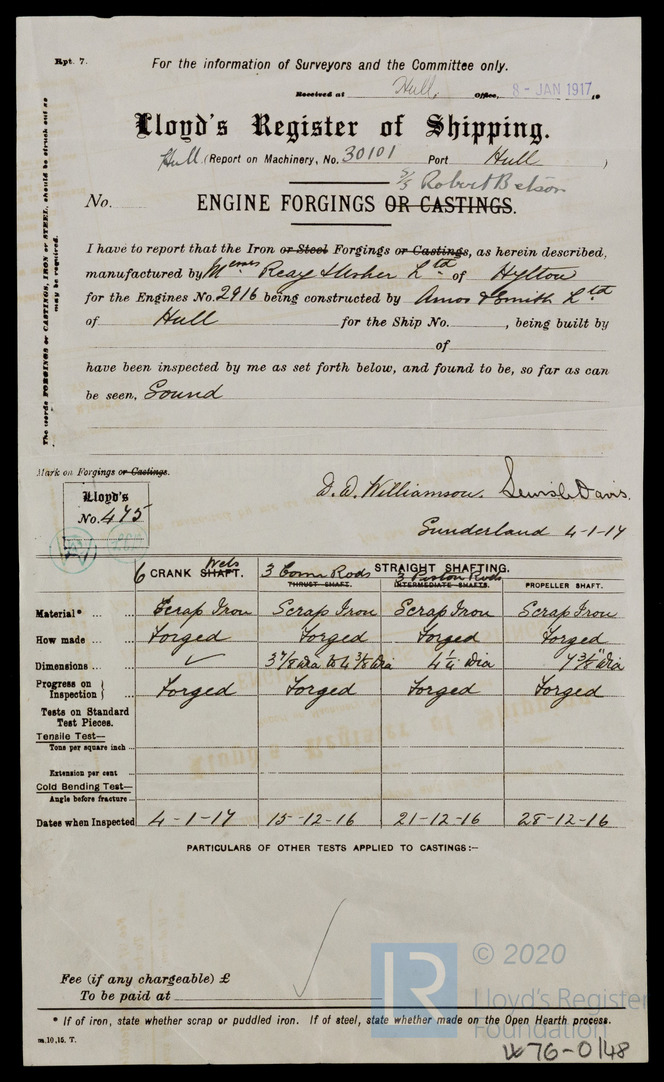 Rpt. 7.
For the information of Surveyors and the Committee only.
Received at Hull. Office, 8 - JAN 1917 19
Lloyd's Register of Shipping.
Hull (Report on Machinery, No. 30101 Port Hull )
S/S Robert Betson
No. ENGINE FORGINGS OR CASTINGS.
The words FORGINGS or CASTINGS, IRON or STEEL should be struck out as may be required.
I have to report that the Iron or Steel Forgings or Castings, as herein described,
manufactured by Messrs Reay & Usher Ltd of Hylton
for the Engines No. 2916 being constructed by Amos & Smith Ltd
of Hull for the Ship No. , being built by
of
have been inspected by me as set forth below, and found to be, so far as can
be seen, Sound
Mark on Forgings or Castings.
Lloyd's
No. 475
D. D. Williamson. Lewis Davis.
Sunderland 4-1-17
6 CRANK SHAFT. Webs
3 Conn Rods THRUST SHAFT.
STRAIGHT SHAFTING.
3 Piston Rods INTERMEDIATE SHAFTS.
PROPELLER SHAFT.
Material* ... Scrap Iron Scrap Iron Scrap Iron Scrap Iron
How made ... Forged Forged Forged Forged
Dimensions ... ✓ 3 7/8 Dia to 4 3/8 Dia 4 1/4 Dia 7 3/8" Dia
Progress on Inspection ... Forged Forged Forged Forged
Tests on Standard
Test Pieces.
Tensile Test—
Tons per square inch ...
Extension per cent
Cold Bending Test—
Angle before fracture...
Dates when Inspected 4-1-17 15-12-16 21-12-16 28-12-16
PARTICULARS OF OTHER TESTS APPLIED TO CASTINGS:—
Fee (if any chargeable) £
To be paid at
© 2020
LR
Lloyd's Register
Foundation
* If of iron, state whether scrap or puddled iron. If of steel, state whether made on the Open Hearth process.
m.10,15. T.
W76-0148